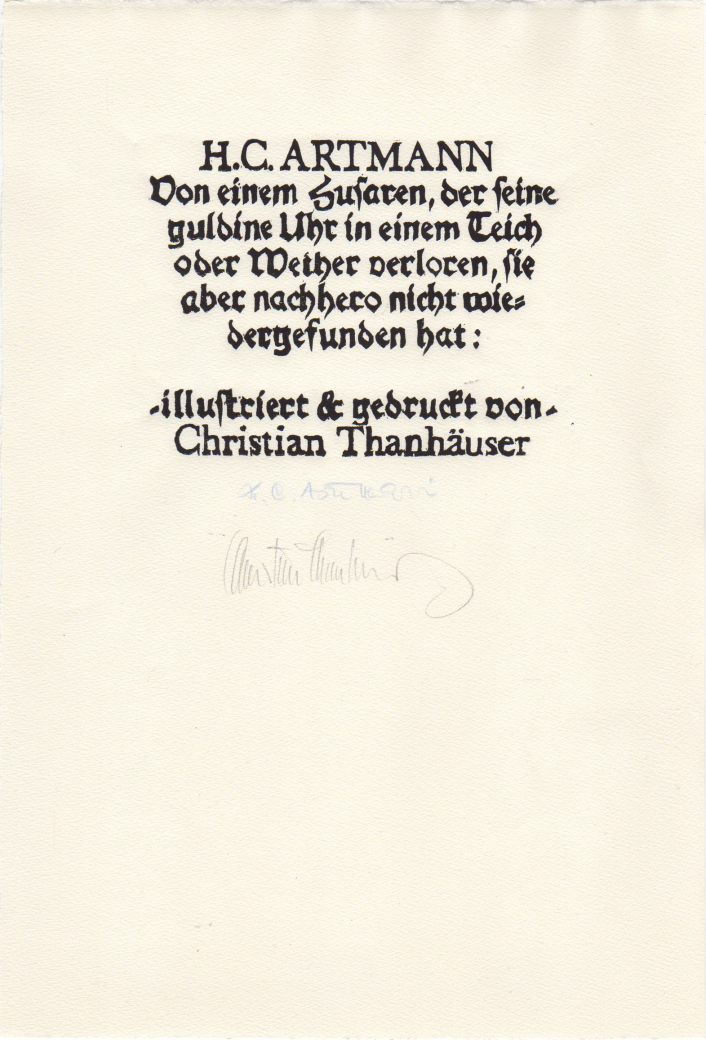 H.C. ARTMANN
Von einem Husaren, der seine
guldine Uhr in einem Teich
oder Weiher verloren, sie
aber nachhero nicht wie=
dergefunden hat:
-illustriert & gedruckt von-
Christian Thanhäuser
H. C. Artmann
Christian Thanhäuser